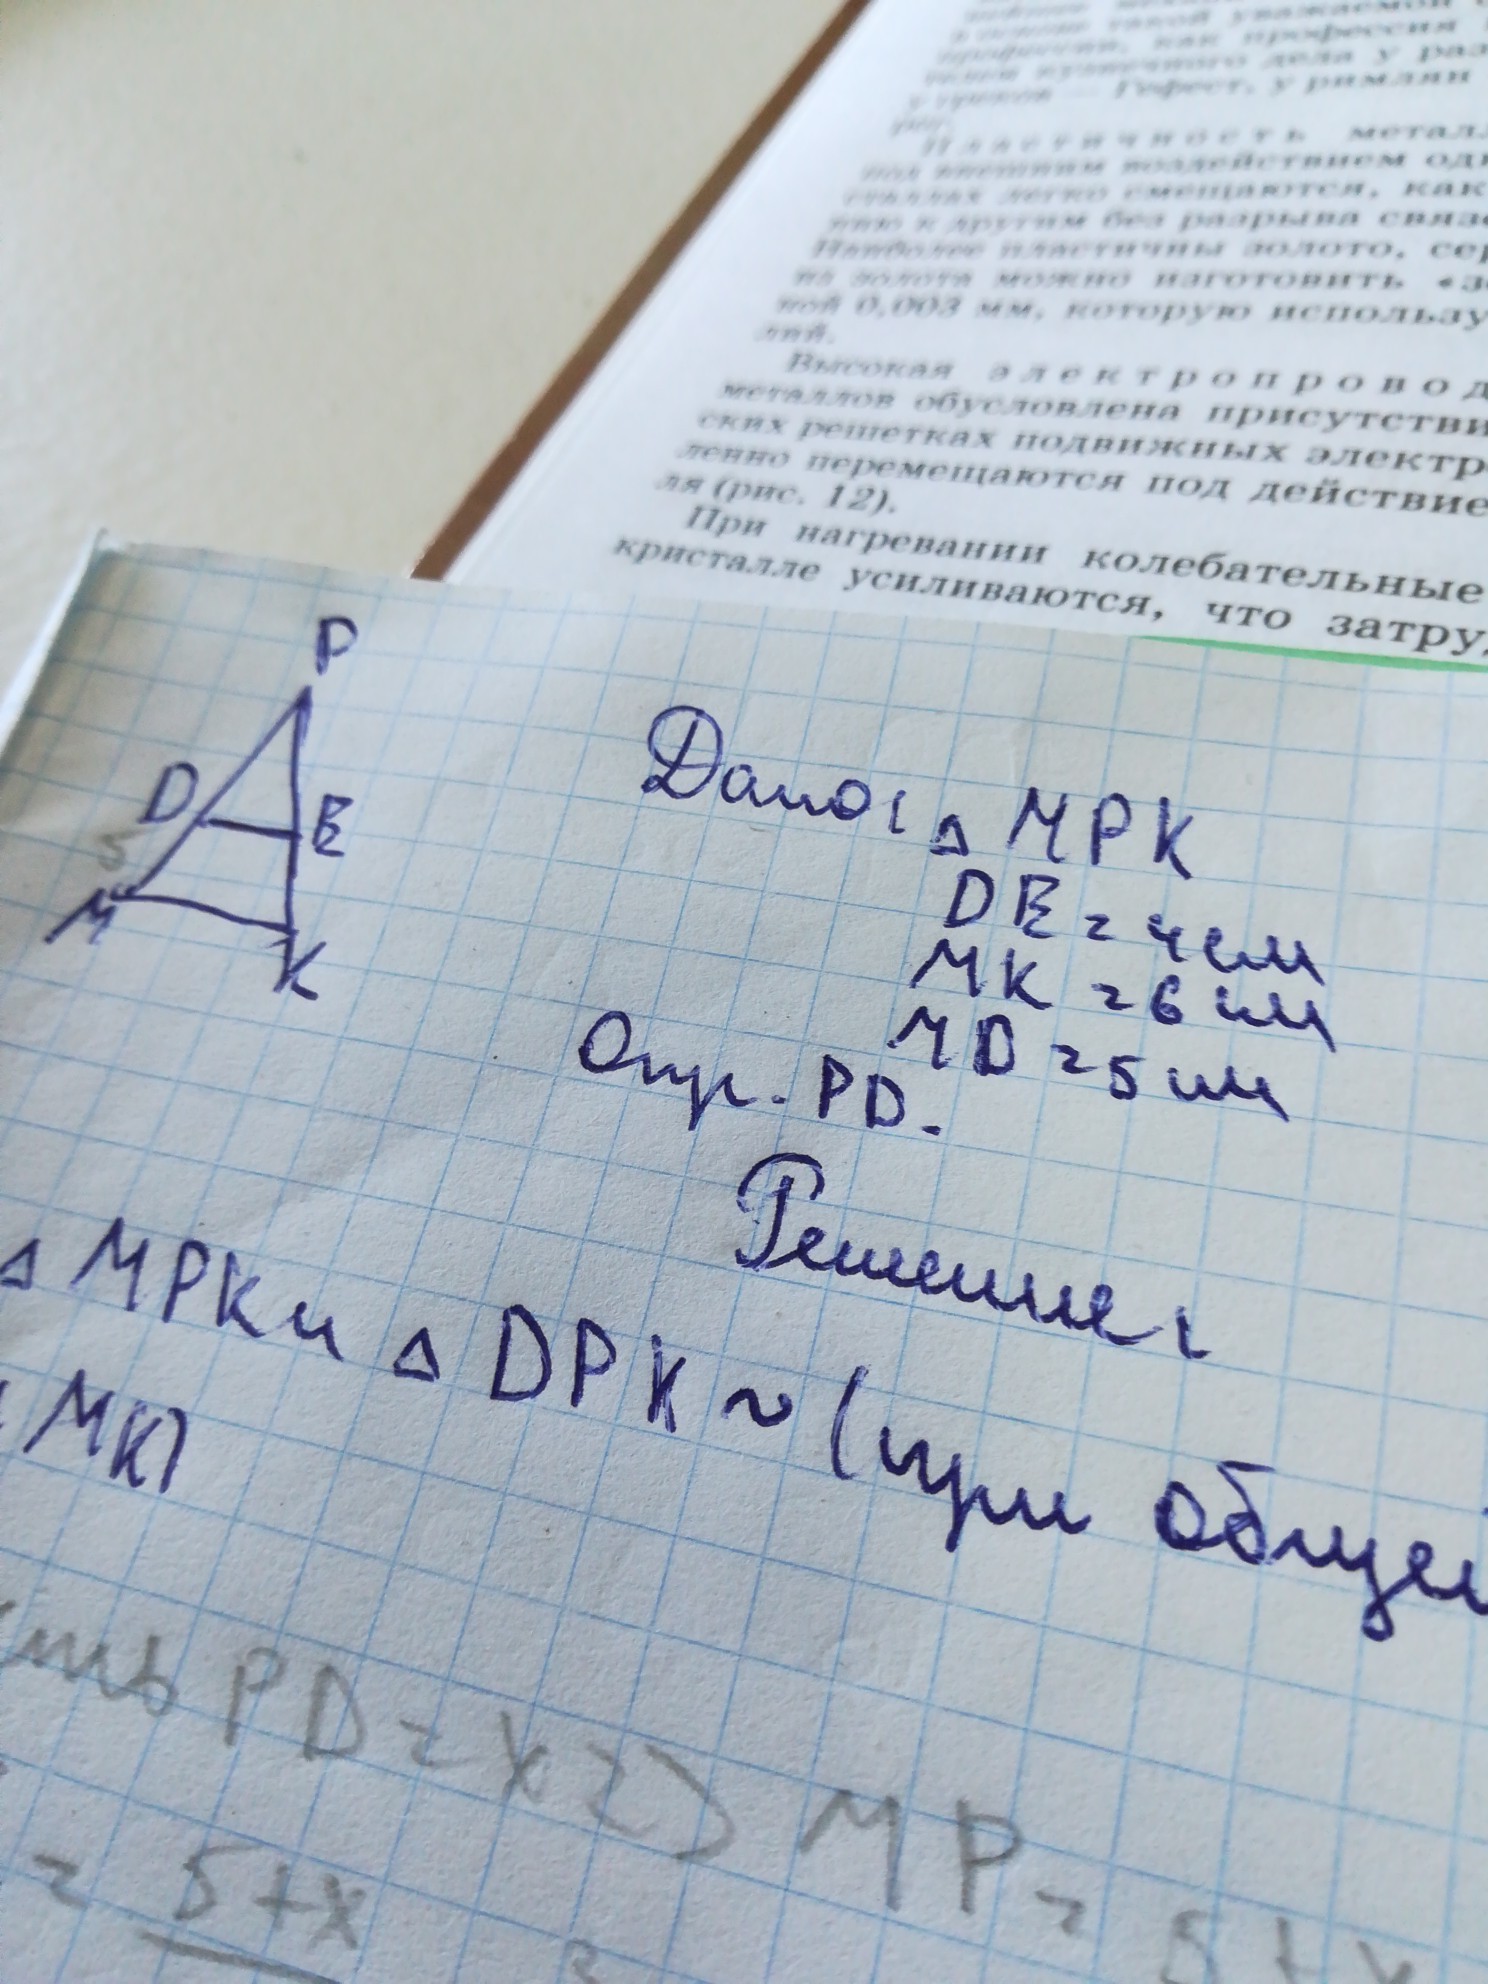 в основе такой уважаемой
профессии, как профессия
кузнечного дела у
у греков — Гефест, у римлян
Пластичность
под внешним воздействием
легко смещаются, как
к другим без разрыва
Наиболее пластичны золото,
из золота можно изготовить
ной 0,003 мм, которую использу
лий.
Высокая электропровод
металлов обусловлена присутстви
ских решетках подвижных электр
ленно перемещаются под действие
ля (рис. 12).
При нагревании колебательные
кристалле усиливаются, что затру
P
D
E
5
M
K
Дано: △ MPK
DE = 4 см
MK = 6 см
MD = 5 см
Опр. PD.
Решение:
△ MPK и △ DPK ~ (при общей
MK)
PD = x => MP = 5 + x
= 5+x